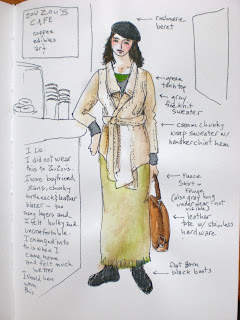 ZOUZOU'S
CAFE
coffee
edibles
art
cashmere
beret
green
tanktop
gray
fine knit
sweater
cream chunky
wrap sweater w/
handkerchief hem
fleece
skirt w
fringe
(also gray long
underwear - not
visible)
leather
tote w/ stainless
hardware
black boots
I lie.
I did not wear
this to ZouZou's.
I wore boyfriend
jeans, chunky
turtleneck, leather
blazer - too
many layers and
I felt bulky and
uncomfortable.
I changed into
this when I
came home
and felt much
better
I should have
worn
this